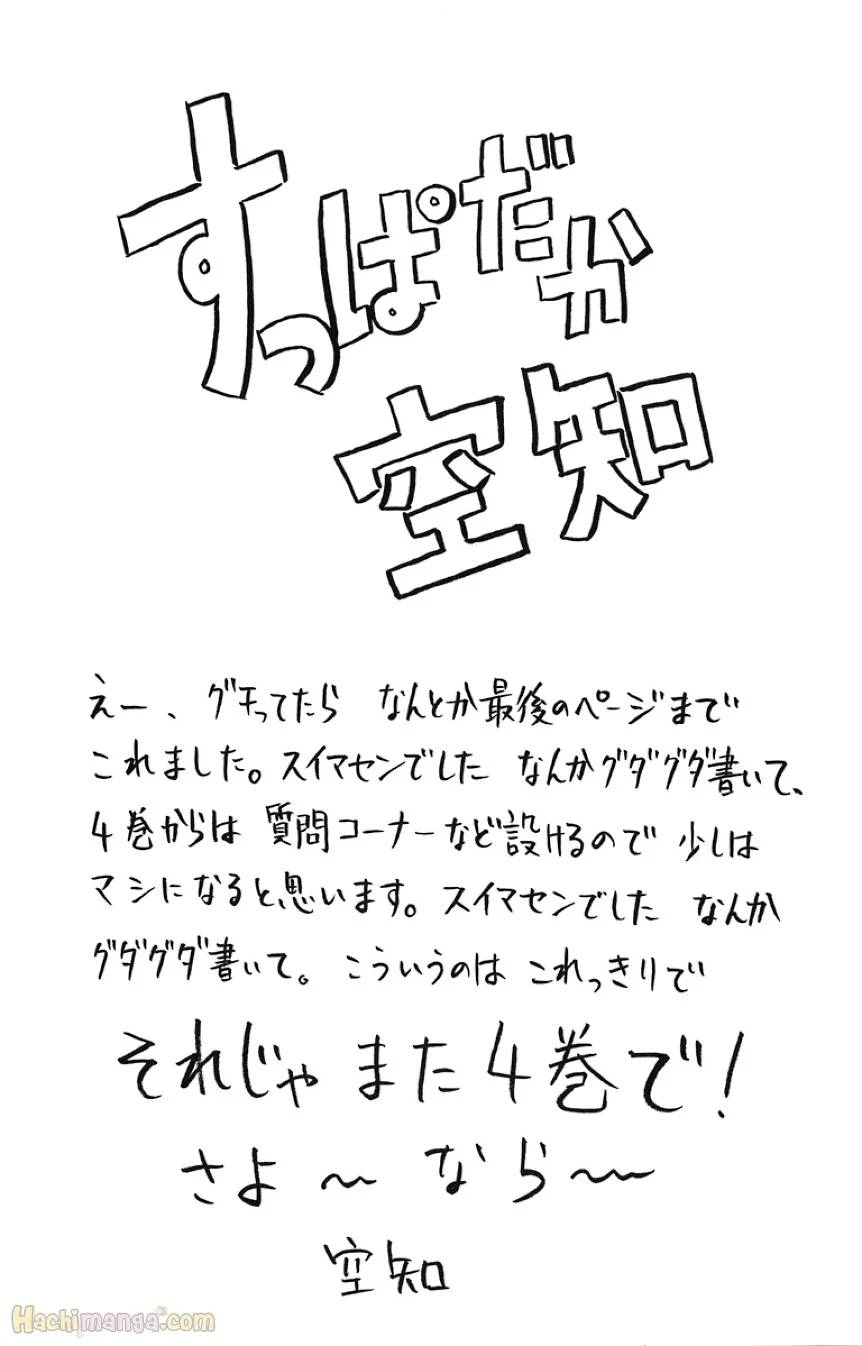 すっぱだか
空知
えー、グチってたら なんとか最後のページまで
これました。スイマセンでした なんかグダグダ書いて、
4巻からは 質問コーナーなど設けるので 少しは
マシになると思います。スイマセンでした なんか
グダグダ書いて。こういうのは これっきりで
それじゃ また 4巻で!
さよ〜 なら〜
空知
Hachimanga.com